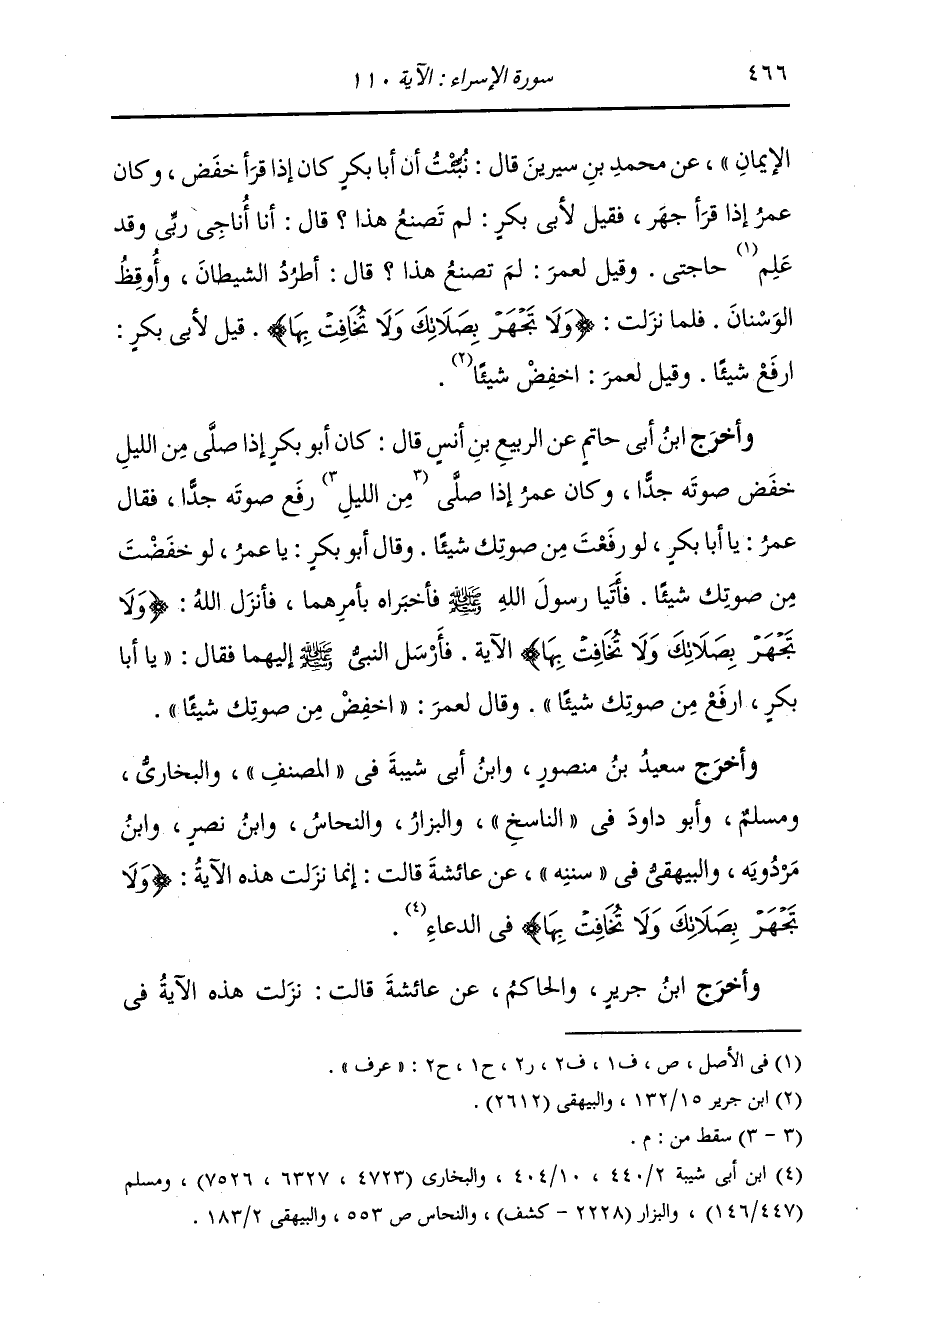 ٤٦٦ سورة الإسراء : الآية ١١٠
الإيمانِ » ، عن محمدِ بنِ سيرينَ قال : نُبِّئْتُ أن أبا بكرٍ كان إذا قرَأ خفَض ، وكان
عمرُ إذا قرَأ جهَر ، فقيل لأبى بكرٍ : لم تَصنعُ هذا ؟ قال : أنا أُناجِى ربِّى وقد
عَلِم(١) حاجتى . وقيل لعمرَ : لمَ تصنعُ هذا ؟ قال : أطرُدُ الشيطانَ ، وأُوقِظُ
الوَسْنانَ . فلما نزَلت : ﴿وَلَا تَجْهَرْ بِصَلَاتِكَ وَلَا تُخَافِتْ بِهَا﴾ . قيل لأبى بكرٍ :
ارفَعْ شيئًا . وقيل لعمرَ : اخفِضْ شيئًا(٢) .
وأخرَج ابنُ أبى حاتمٍ عن الربيعِ بنِ أنسٍ قال : كان أبو بكرٍ إذا صلَّى مِن الليلِ
خفَض صوتَه جدًّا ، وكان عمرُ إذا صلَّى (٣مِن الليلِ٣) رفَع صوتَه جدًّا ، فقال
عمرُ : يا أبا بكرٍ ، لو رفَعْتَ مِن صوتِك شيئًا . وقال أبو بكرٍ : يا عمرُ ، لو خفَضْتَ
مِن صوتِك شيئًا . فأَتَيا رسولَ اللهِ ﷺ فأخبَراه بأمرِهما ، فأنزَل اللهُ : ﴿وَلَا
تَجْهَرْ بِصَلَاتِكَ وَلَا تُخَافِتْ بِهَا﴾ الآية . فأَرْسَل النبىُّ ﷺ إليهما فقال : « يا أبا
بكرٍ ، ارفَعْ مِن صوتِك شيئًا » . وقال لعمرَ : « اخفِضْ مِن صوتِك شيئًا » .
وأخرَج سعيدُ بنُ منصورٍ ، وابنُ أبى شيبةَ فى « المصنفِ » ، والبخارىُّ ،
ومسلمٌ ، وأبو داودَ فى « الناسخِ » ، والبزارُ ، والنحاسُ ، وابنُ نصرٍ ، وابنُ
مَرْدُويَه ، والبيهقىُّ فى « سننِه » ، عن عائشةَ قالت : إنما نزَلت هذه الآيةُ : ﴿وَلَا
تَجْهَرْ بِصَلَاتِكَ وَلَا تُخَافِتْ بِهَا﴾ فى الدعاءِ(٤) .
وأخرَج ابنُ جريرٍ ، والحاكمُ ، عن عائشةَ قالت : نزَلت هذه الآيةُ فى
(١) فى الأصل ، ص ، ف١ ، ف٢ ، ر٢ ، ح١ ، ح٢ : « عرف » .
(٢) ابن جرير ١٣٢/١٥ ، والبيهقى (٢٦١٢) .
(٣ - ٣) سقط من : م .
(٤) ابن أبى شيبة ٤٤٠/٢ ، ٤٠٤/١٠ ، والبخارى (٤٧٢٣ ، ٦٣٢٧ ، ٧٥٢٦) ، ومسلم
(١٤٦/٤٤٧) ، والبزار (٢٢٢٨ - كشف) ، والنحاس ص ٥٥٣ ، والبيهقى ١٨٣/٢ .